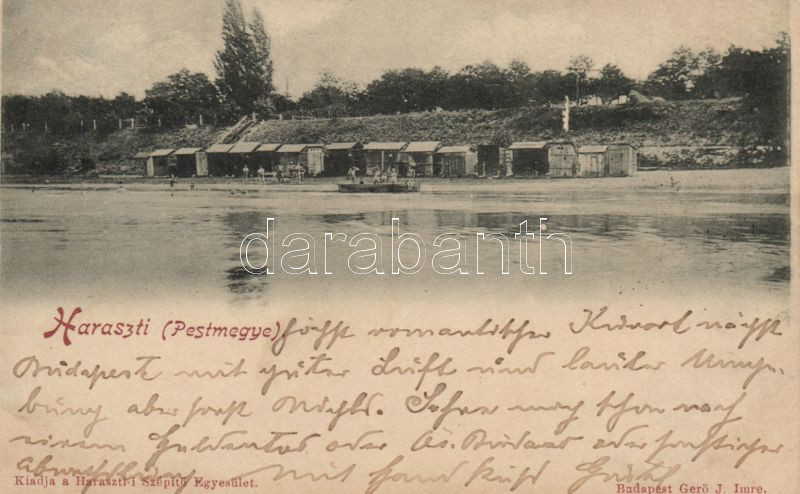 darabanth
Haraszti (Pestmegye) höchst romantischer Kurort nächst
Budapest mit guter Luft und lauter Umge-
bung aber sonst Nichts. Sehne mich schon nach
einem oder oder sonstiger
Abwechslung. Mit Handkuss
Kiadja a Haraszti-i Szépitő Egyesület.
Budapest Gerő J. Imre.